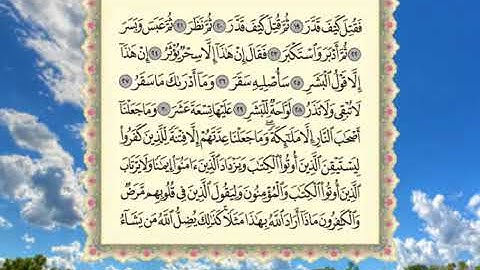 فَقُتِلَ كَيْفَ قَدَّرَ ١٩ ثُمَّ قُتِلَ كَيْفَ قَدَّرَ ٢٠ ثُمَّ نَظَرَ ٢١ ثُمَّ عَبَسَ وَبَسَرَ
٢٢ ثُمَّ أَدْبَرَ وَٱسْتَكْبَرَ ٢٣ فَقَالَ إِنْ هَٰذَآ إِلَّا سِحْرٌ يُؤْثَرُ ٢٤ إِنْ هَٰذَآ
إِلَّا قَوْلُ ٱلْبَشَرِ ٢٥ سَأُصْلِيهِ سَقَرَ ٢٦ وَمَآ أَدْرَىٰكَ مَا سَقَرُ ٢٧
لَا تُبْقِى وَلَا تَذَرُ ٢٨ لَوَّاحَةٌ لِّلْبَشَرِ ٢٩ عَلَيْهَا تِسْعَةَ عَشَرَ ٣٠ وَمَا جَعَلْنَآ
أَصْحَٰبَ ٱلنَّارِ إِلَّا مَلَٰٓئِكَةً وَمَا جَعَلْنَا عِدَّتَهُمْ إِلَّا فِتْنَةً لِّلَّذِينَ كَفَرُوا۟
لِيَسْتَيْقِنَ ٱلَّذِينَ أُوتُوا۟ ٱلْكِتَٰبَ وَيَزْدَادَ ٱلَّذِينَ ءَامَنُوٓا۟ إِيمَٰنًا وَلَا يَرْتَابَ
ٱلَّذِينَ أُوتُوا۟ ٱلْكِتَٰبَ وَٱلْمُؤْمِنُونَ وَلِيَقُولَ ٱلَّذِينَ فِى قُلُوبِهِم مَّرَضٌ
وَٱلْكَٰفِرُونَ مَاذَآ أَرَادَ ٱللَّهُ بِهَٰذَا مَثَلًا كَذَٰلِكَ يُضِلُّ ٱللَّهُ مَن يَشَآءُ